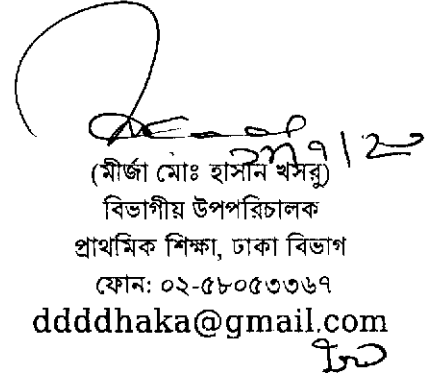 (মীর্জা মোঃ হাসান খসরু)
বিভাগীয় উপপরিচালক
প্রাথমিক শিক্ষা, ঢাকা বিভাগ
ফোন: ০২-৫৮০৫৩৩৬৭
ddddhaka@gmail.com